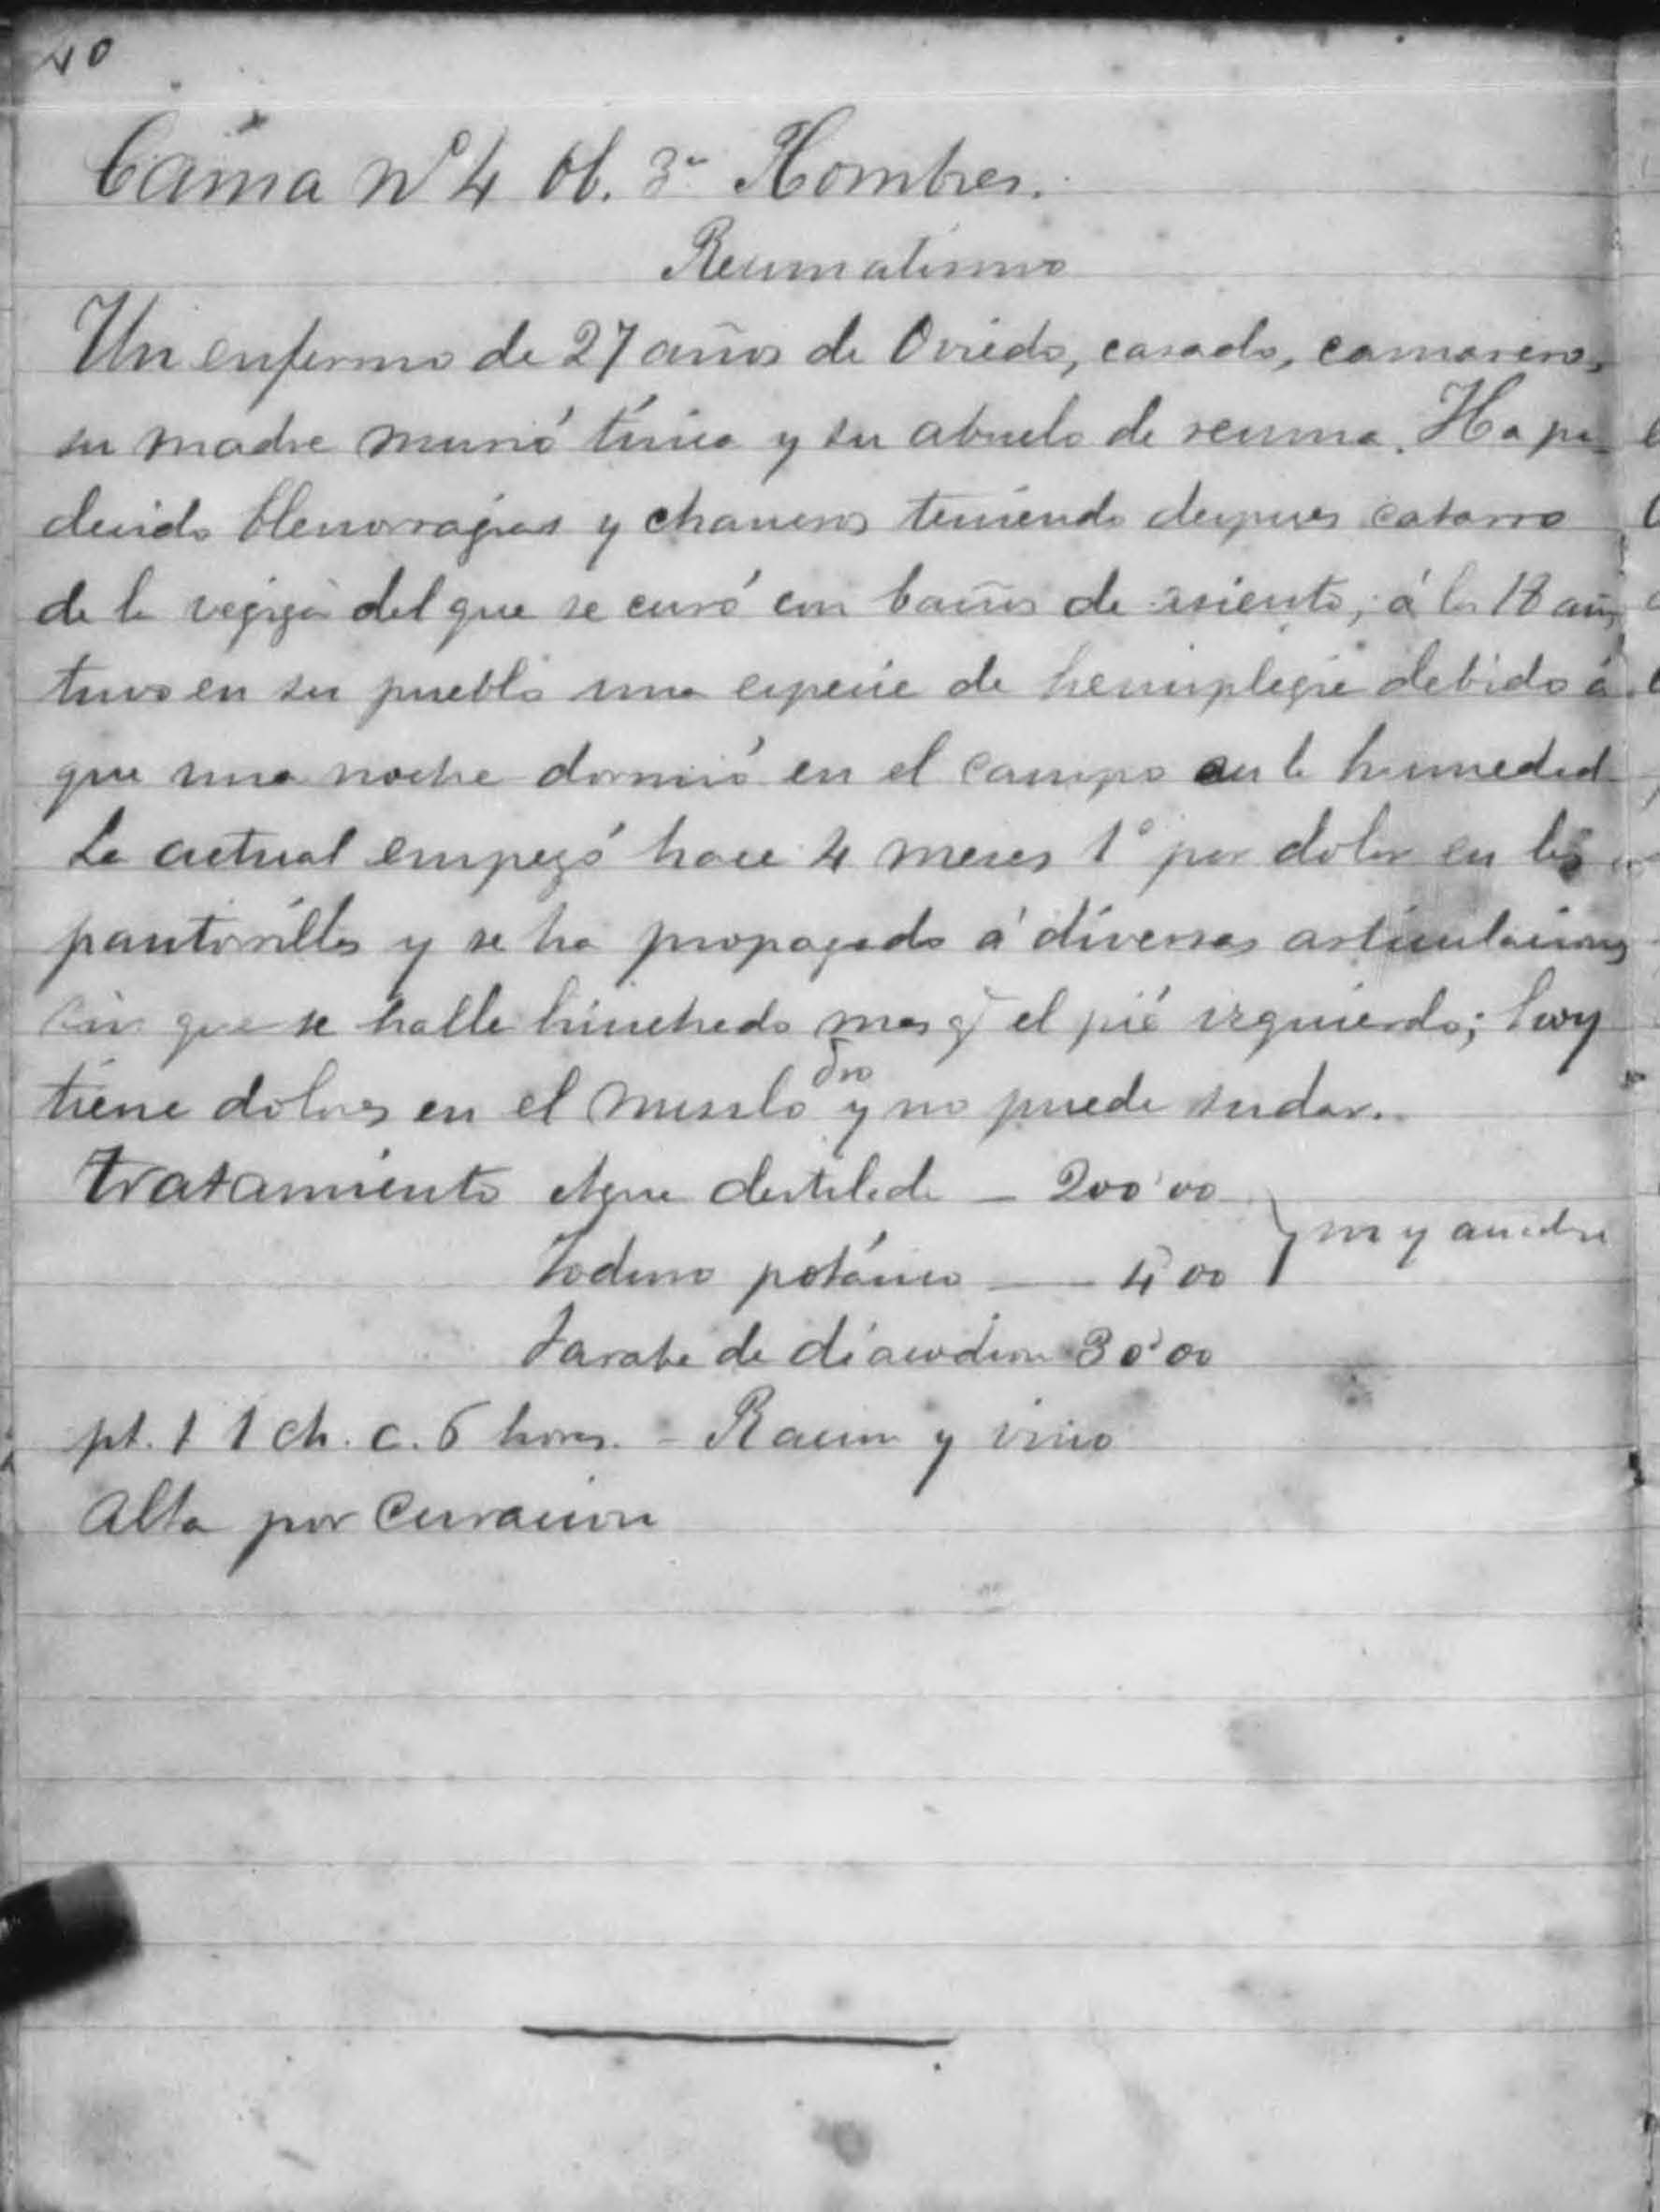 40
Cama Nº 4 Ob. 3ª Hombres.
Reumatismo
Un enfermo de 27 años de Oviedo, casado, camarero,
su madre murió tísica y su abuelo de reuma. Ha pa-
decido blenorragias y chancros teniendo despues catarro
de la vegiga del que se curó con baños de asiento; á los 18 años
tuvo en su pueblo una especie de hemiplegia debido á
que una noche durmió en el campo en la humedad
La actual empezó hace 4 meses 1º por dolor en las
pantorrillas y se ha propagado á diversas articulaciones
sin que se halle hinchado mas q̃ el pié izquierdo; hoy
tiene dolores en el muslo dro y no puede sudar.
Tratamiento Agua destilada — 200'00
Ioduro potásico — 4'00 } m y añadase
Jarabe de diacodion 30'00
pt. 1 1 ch. c. 6 horas. - Racion y vino
Alta por Curacion